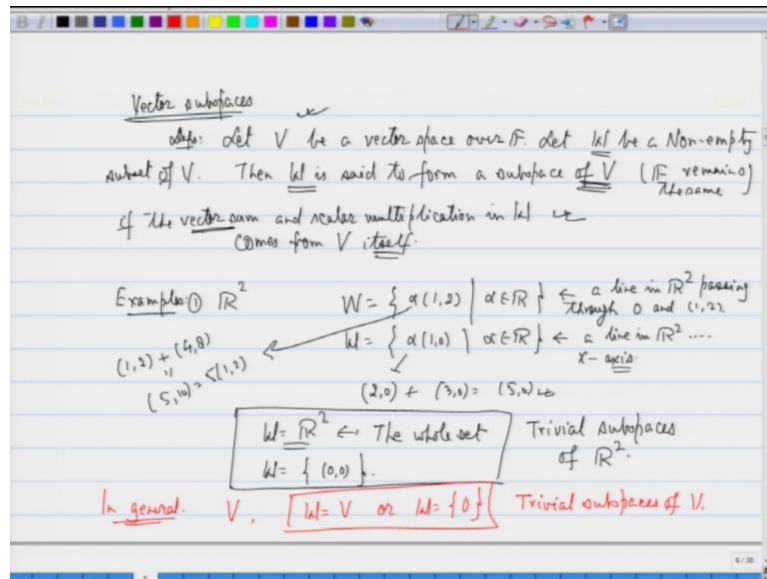 Vector subspaces
Defn: Let V be a vector space over F. Let W be a Non-empty
subset of V. Then W is said to form a subspace of V (F remains the same)
if the vector sum and scalar multiplication in W
comes from V itself.
Examples: ① ℝ² W = { α(1,2) | α∈ℝ } ← a line in ℝ² passing through 0 and (1,2).
W = { α(1,0) | α∈ℝ } ← a line in ℝ² .... x-axis.
(1,2) + (4,8)
"
(5,10) = 5(1,2)
(2,0) + (3,0) = (5,0)
W = ℝ² ← The whole set
W = { (0,0) }.
Trivial subspaces of ℝ².
In general. V, W = V or W = {0} Trivial subspaces of V.
6/30